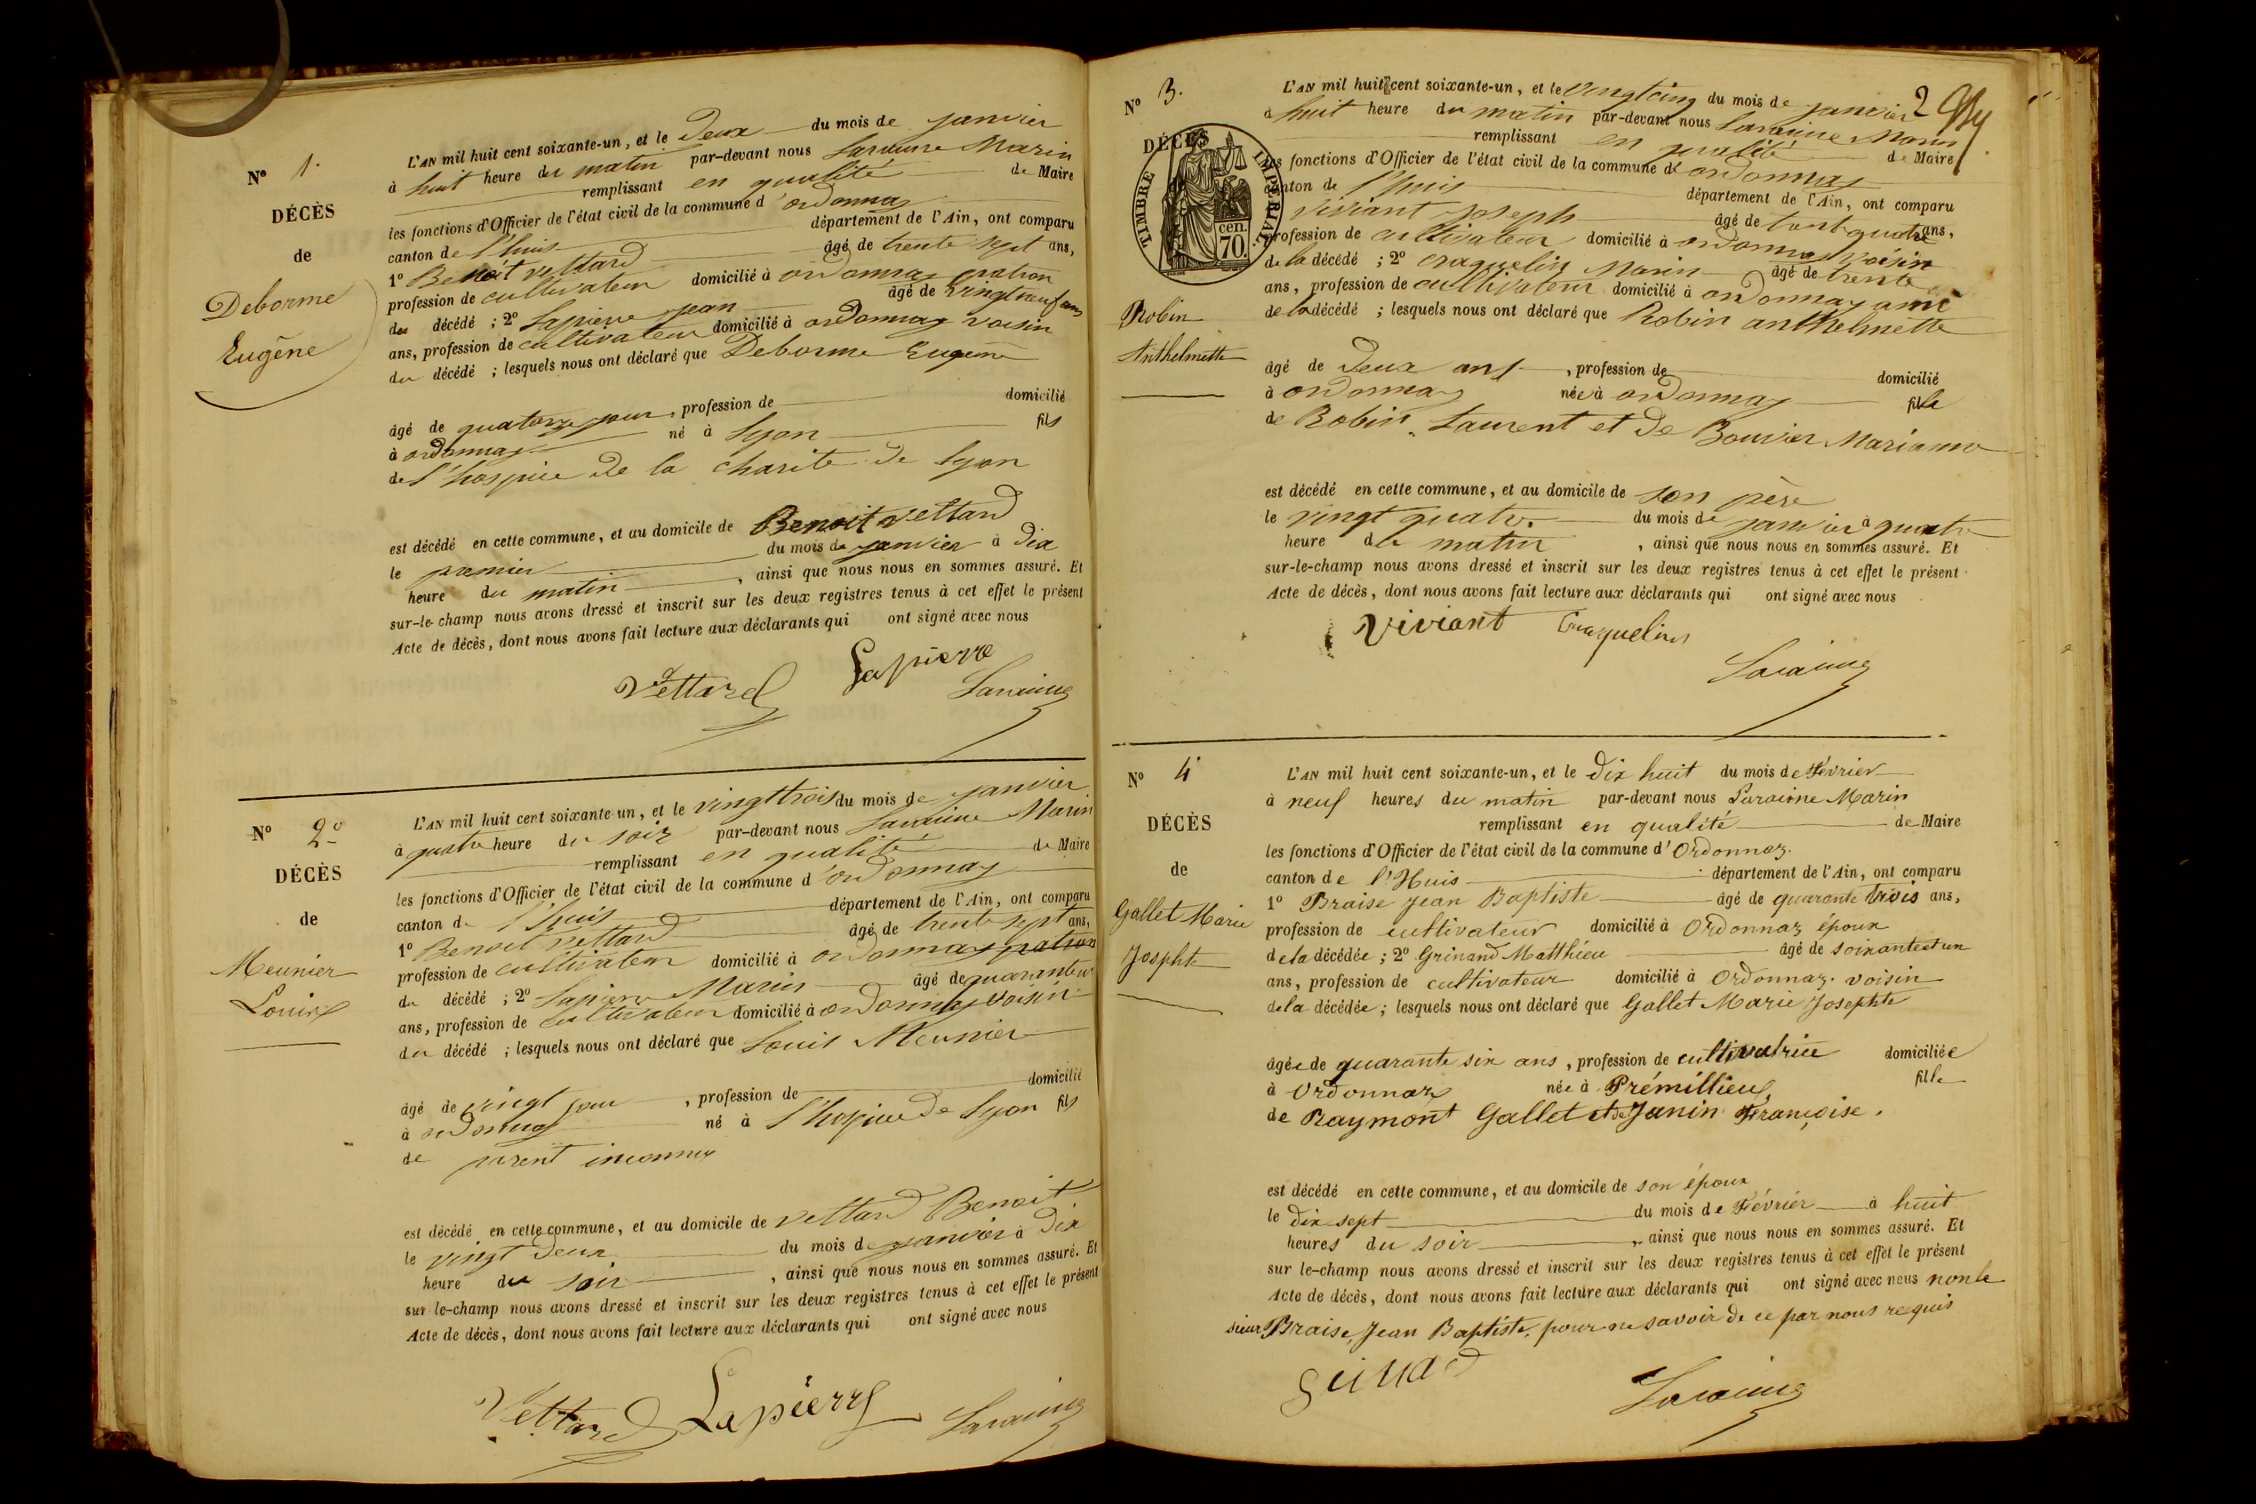 N° 1.
DÉCÈS
de
Deborme
Eugène
L'AN mil huit cent soixante-un, et le Deux du mois de janvier
à huit heure du matin par-devant nous Laraine Marin
remplissant en qualité de Maire
les fonctions d'Officier de l'état civil de la commune d'ordonnaz
canton de l'huis département de l'Ain, ont comparu
1° Benoit Vettard âgé de trente sept ans,
profession de cultivateur domicilié à ordonnaz patron
du décédé ; 2° Lapierre jean âgé de vingt neuf ans
ans, profession de cultivateur domicilié à ordonnaz voisin
du décédé ; lesquels nous ont déclaré que Deborme Eugène
âgé de quatorze jour, profession de domicilié
à ordonnaz né à lyon fils
de l'hospice de la charité de lyon
est décédé en cette commune, et au domicile de Benoit Vettard
le premier du mois de janvier à dix
heure du matin, ainsi que nous nous en sommes assuré. Et
sur-le-champ nous avons dressé et inscrit sur les deux registres tenus à cet effet le présent
Acte de décès, dont nous avons fait lecture aux déclarants qui ont signé avec nous
Vettard Lapierre
N° 2°
DÉCÈS
de
Meunier
Louis
L'AN mil huit cent soixante-un, et le vingt trois du mois de janvier
à quatre heure du soir par-devant nous Laraine Marin
remplissant en qualité de Maire
les fonctions d'Officier de l'état civil de la commune d'ordonnaz
canton de l'huis département de l'Ain, ont comparu
1° Benoit Vettard âgé de trente sept ans,
profession de cultivateur domicilié à ordonnaz patron
du décédé ; 2° Lapierre Marin âgé de quarante
ans, profession de cultivateur domicilié à ordonnaz voisin
du décédé ; lesquels nous ont déclaré que Louis Meunier
âgé de vingt jour, profession de domicilié
à ordonnaz né à l'hospice de lyon fils
de parent inconnu
est décédé en cette commune, et au domicile de Vettard Benoit
le vingt deux du mois de janvier à dix
heure du soir, ainsi que nous nous en sommes assuré. Et
sur-le-champ nous avons dressé et inscrit sur les deux registres tenus à cet effet le présent
Acte de décès, dont nous avons fait lecture aux déclarants qui ont signé avec nous
Vettard Lapierre
2
N° 3.
DÉCÈS
TIMBRE IMPÉRIAL
70 cen.
Robin
Anthelmette
L'AN mil huit cent soixante-un, et le vingt cinq du mois de janvier
à huit heure du matin par-devant nous Laraine Marin
remplissant en qualité de Maire
les fonctions d'Officier de l'état civil de la commune d'ordonnaz
canton de l'huis département de l'Ain, ont comparu
Viviant Joseph âgé de trente quatre ans,
profession de cultivateur domicilié à ordonnaz voisin
de la décédé ; 2° Craquelin Marin âgé de trente
ans, profession de cultivateur domicilié à ordonnaz ami
de la décédé ; lesquels nous ont déclaré que Robin anthelmette
âgé de deux ans, profession de domicilié
à ordonnaz née à ordonnaz fille
de Robin Laurent et de Bouvier Marianne
est décédé en cette commune, et au domicile de son père
le vingt quatre du mois de janvier à quatre
heure du matin, ainsi que nous nous en sommes assuré. Et
sur-le-champ nous avons dressé et inscrit sur les deux registres tenus à cet effet le présent
Acte de décès, dont nous avons fait lecture aux déclarants qui ont signé avec nous
Viviant Craquelin
N° 4
DÉCÈS
de
Gallet Marie
Josphte
L'AN mil huit cent soixante-un, et le dix huit du mois de Février
à neuf heures du matin par-devant nous Laraine Marin
remplissant en qualité de Maire
les fonctions d'Officier de l'état civil de la commune d'Ordonnaz
canton de l'Huis département de l'Ain, ont comparu
1° Braise Jean Baptiste âgé de quarante trois ans,
profession de cultivateur domicilié à Ordonnaz époux
de la décédée ; 2° Grinand Matthieu âgé de soixante et un
ans, profession de cultivateur domicilié à Ordonnaz. voisin
de la décédée ; lesquels nous ont déclaré que Gallet Marie Josephte
âgée de quarante six ans, profession de cultivatrice domiciliée
à Ordonnaz née à Prémillieu, fille
de Raymont Gallet et de Janin Françoise.
est décédé en cette commune, et au domicile de son époux
le dix sept du mois de Février à huit
heures du soir, ainsi que nous nous en sommes assuré. Et
sur le-champ nous avons dressé et inscrit sur les deux registres tenus à cet effet le présent
Acte de décès, dont nous avons fait lecture aux déclarants qui ont signé avec nous non le
sieur Braise, Jean Baptiste, pour ne savoir de ce par nous requis